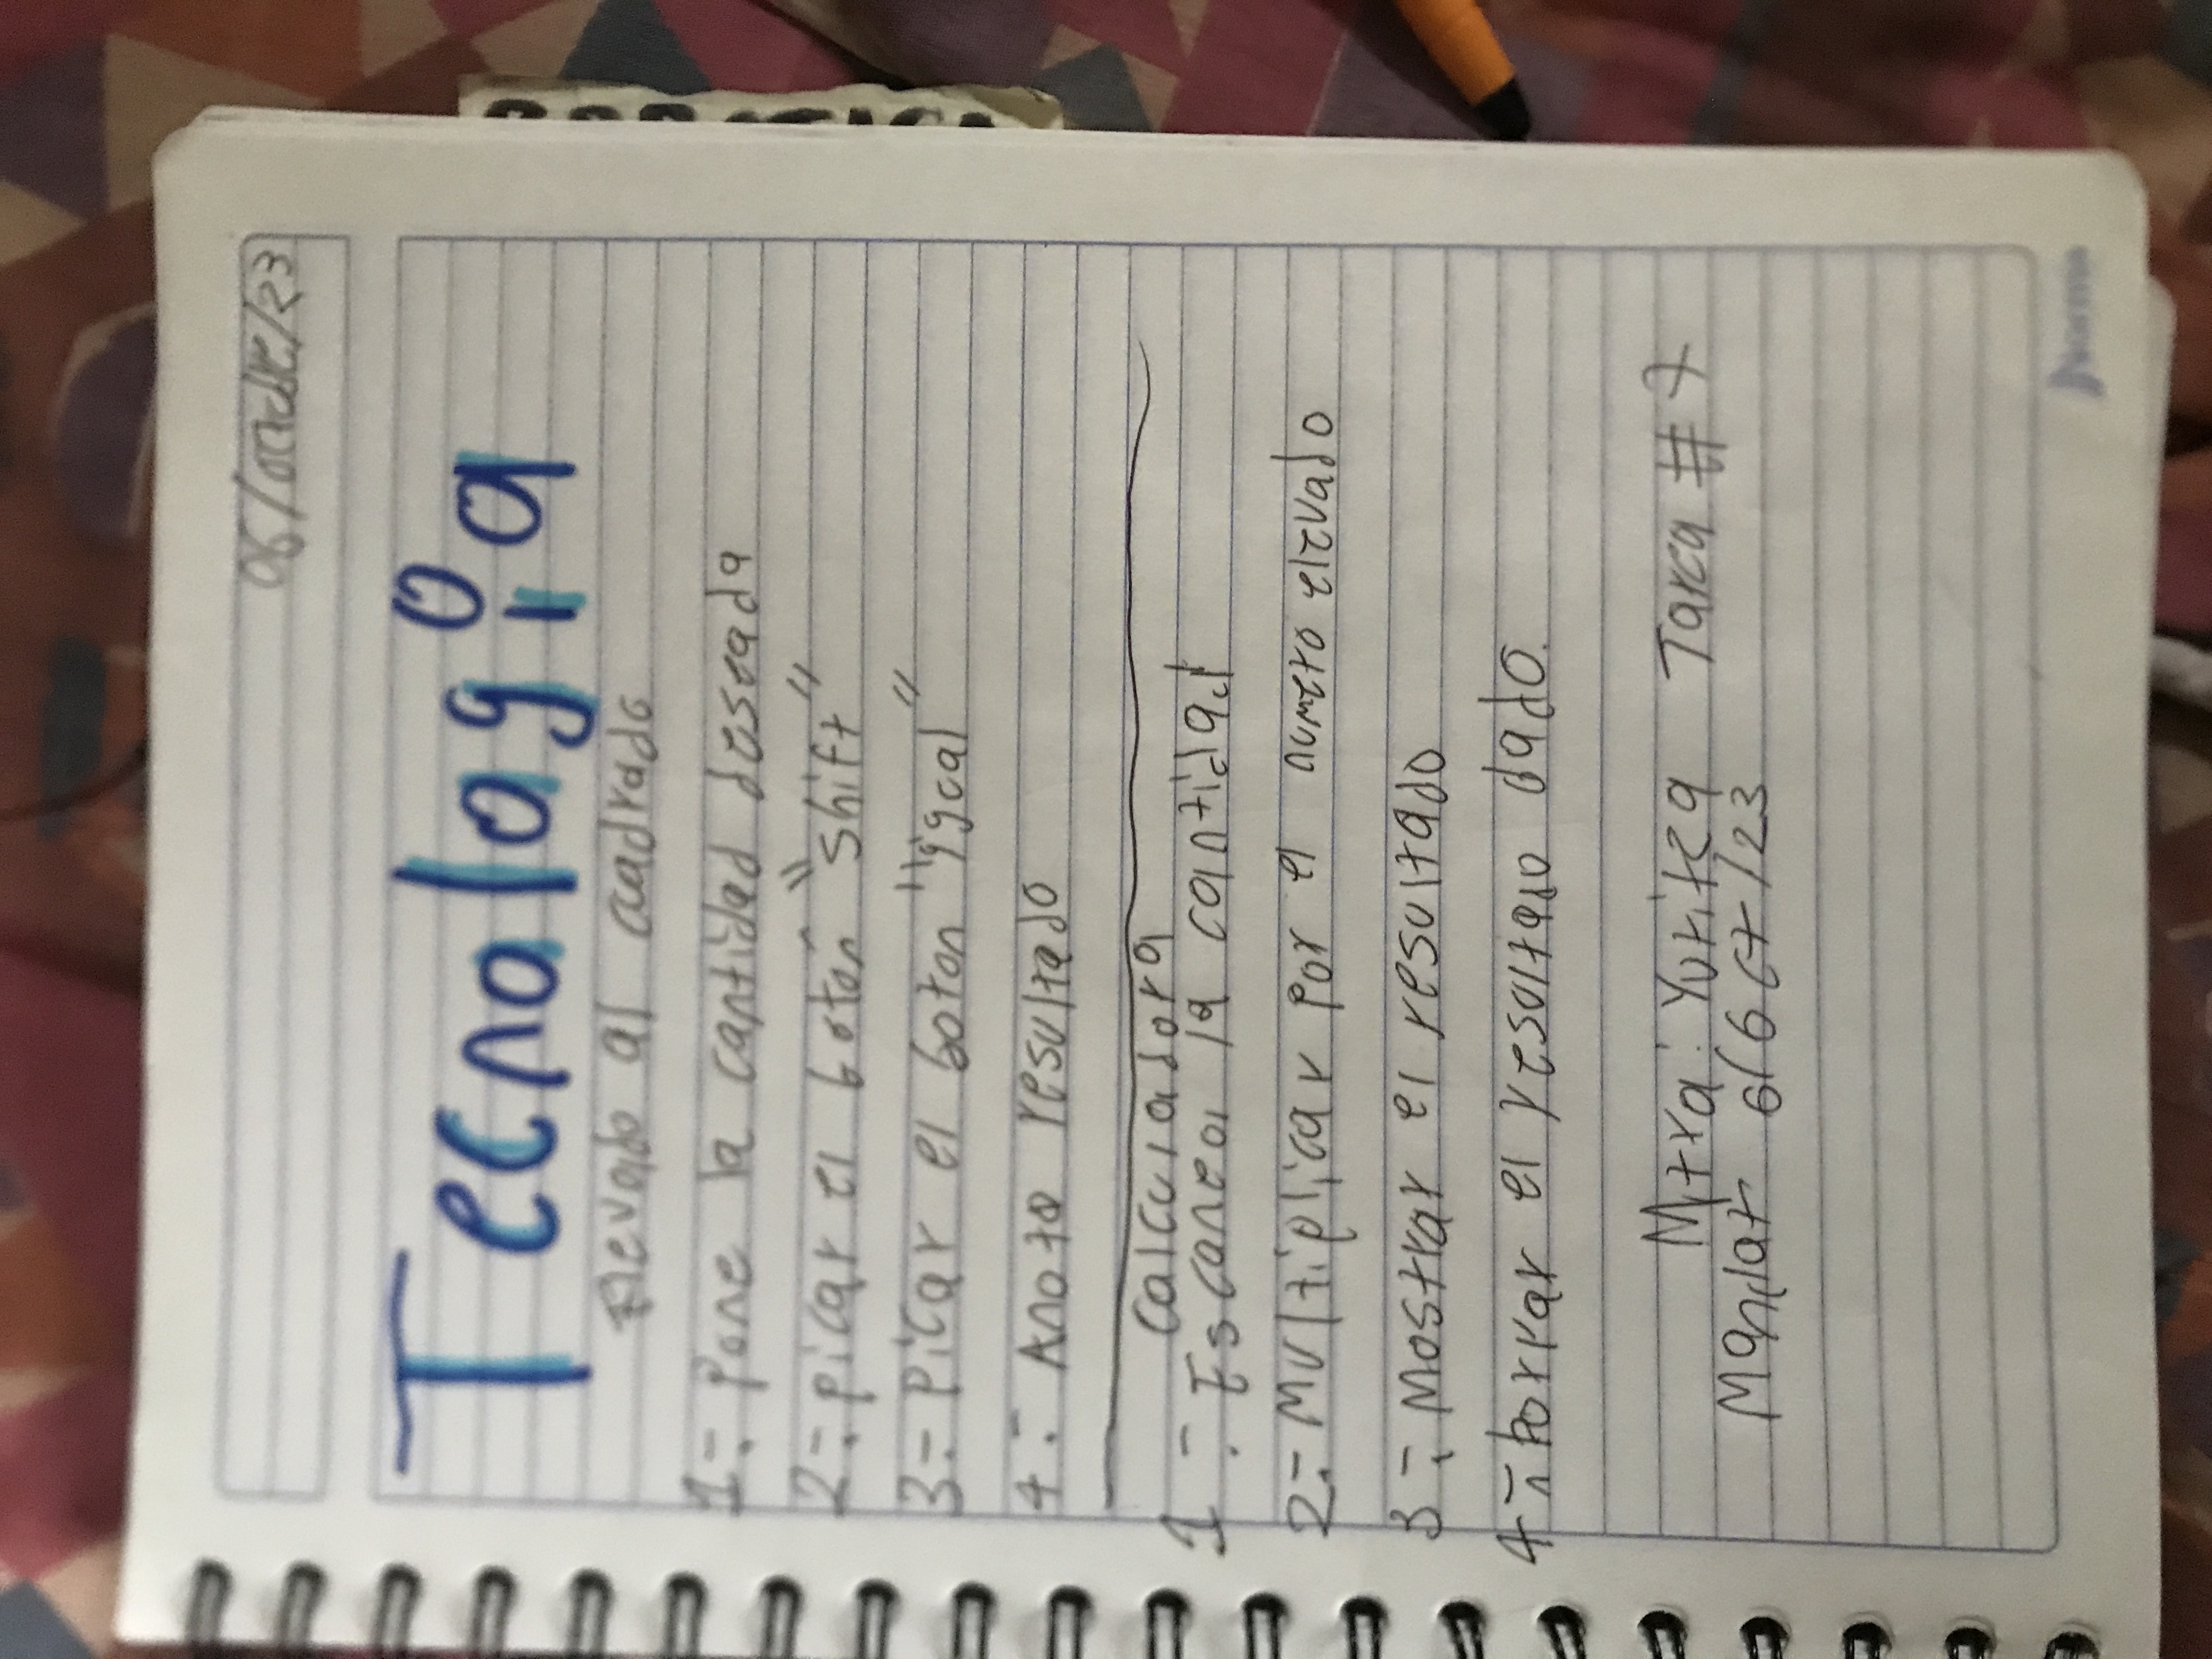 06/octubre/23
Tecnología
Elevado al cuadrado
1.- Pone la cantidad deseada
2.- picar el botón "shift"
3.- Picar el boton "igual"
4.- Anoto resultado
Calculadora
1.- Escaneoi la cantidad
2.- Multiplicar por el numero elevado
3.- Mostrar el resultado
4.- borrar el resultado dado.
Mtra: Yuritza Tarea #7
Mandar 6/6ct/23
norma